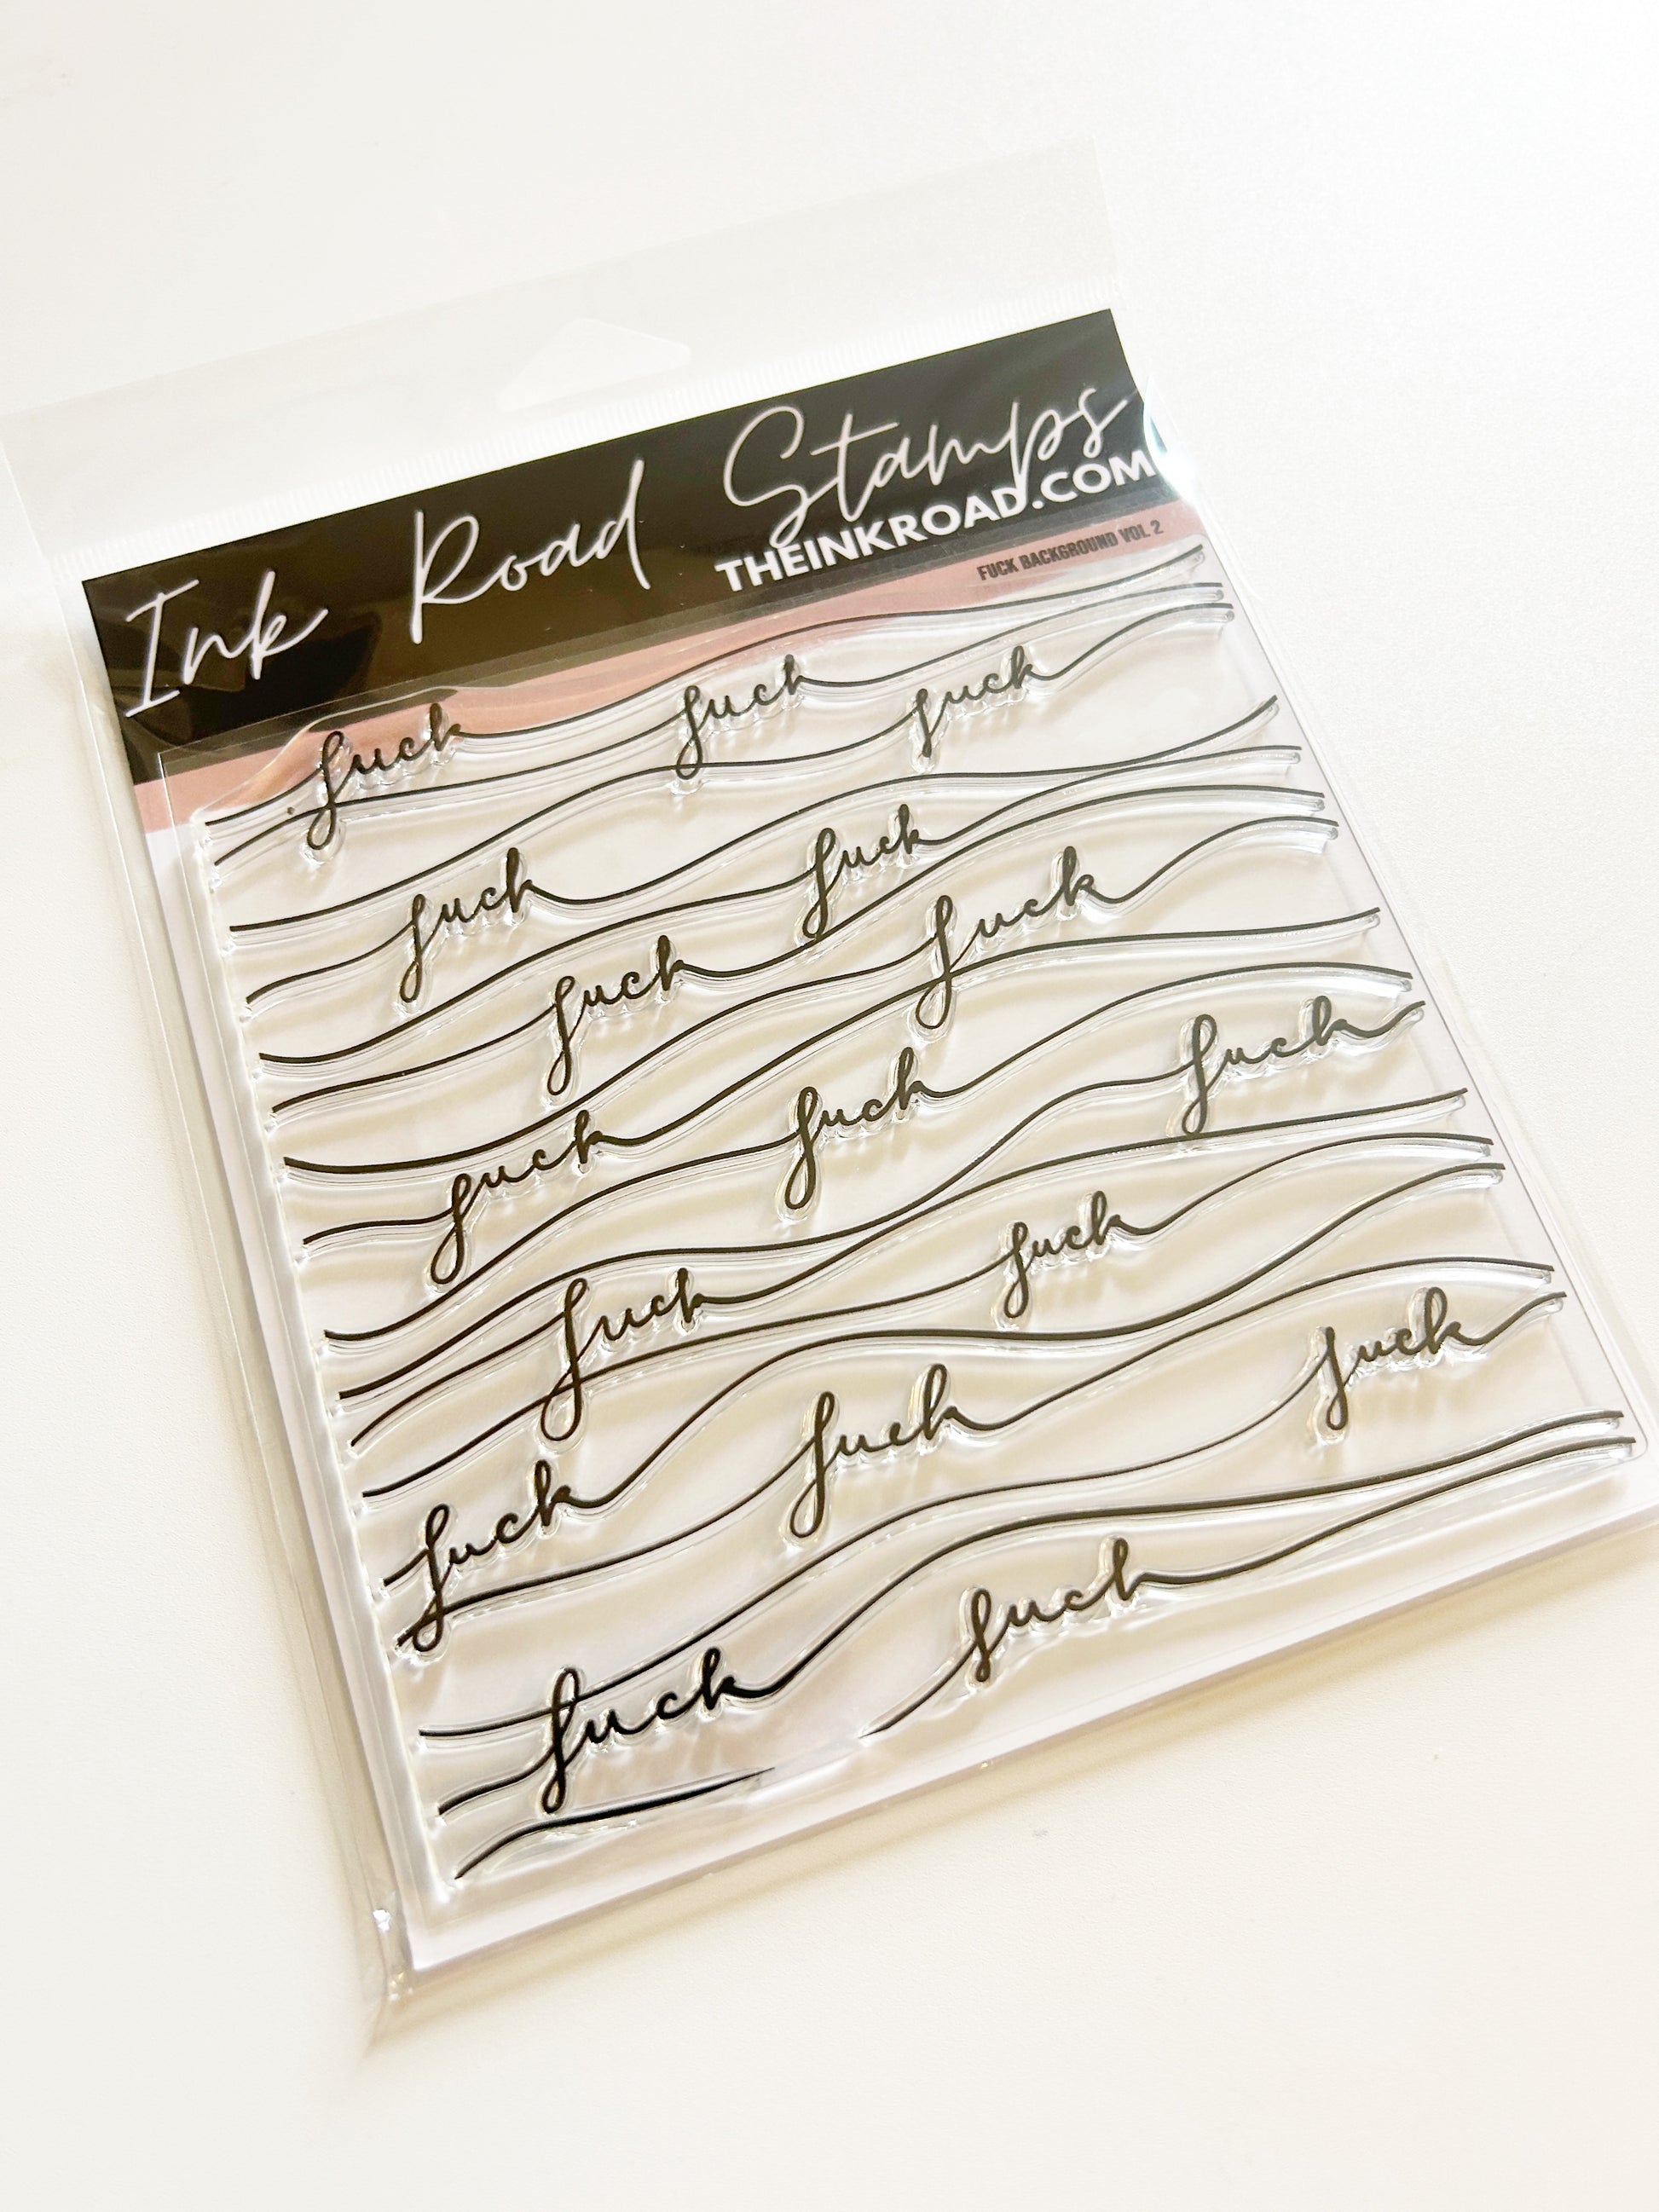 Ink Road Stamps
THEINKROAD.COM
FUCK BACKGROUND VOL 2
fuck fuck fuck
fuck fuck
fuck fuck
fuck fuck fuck
fuck fuck
fuck fuck fuck
fuck fuck